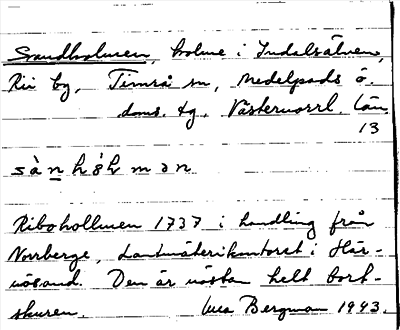 Sandholmen, holme i Indalsälven,
Rii by, Timrå sn, Medelpads ö.
doms. tg, Västernorrl. län.
13
sànhål mən
Riboholmen 1737 i handling från
Norrberge, Lantmäterikontoret i Här-
nösand. Den är nästan helt bort-
skuren. Bergman 1943.